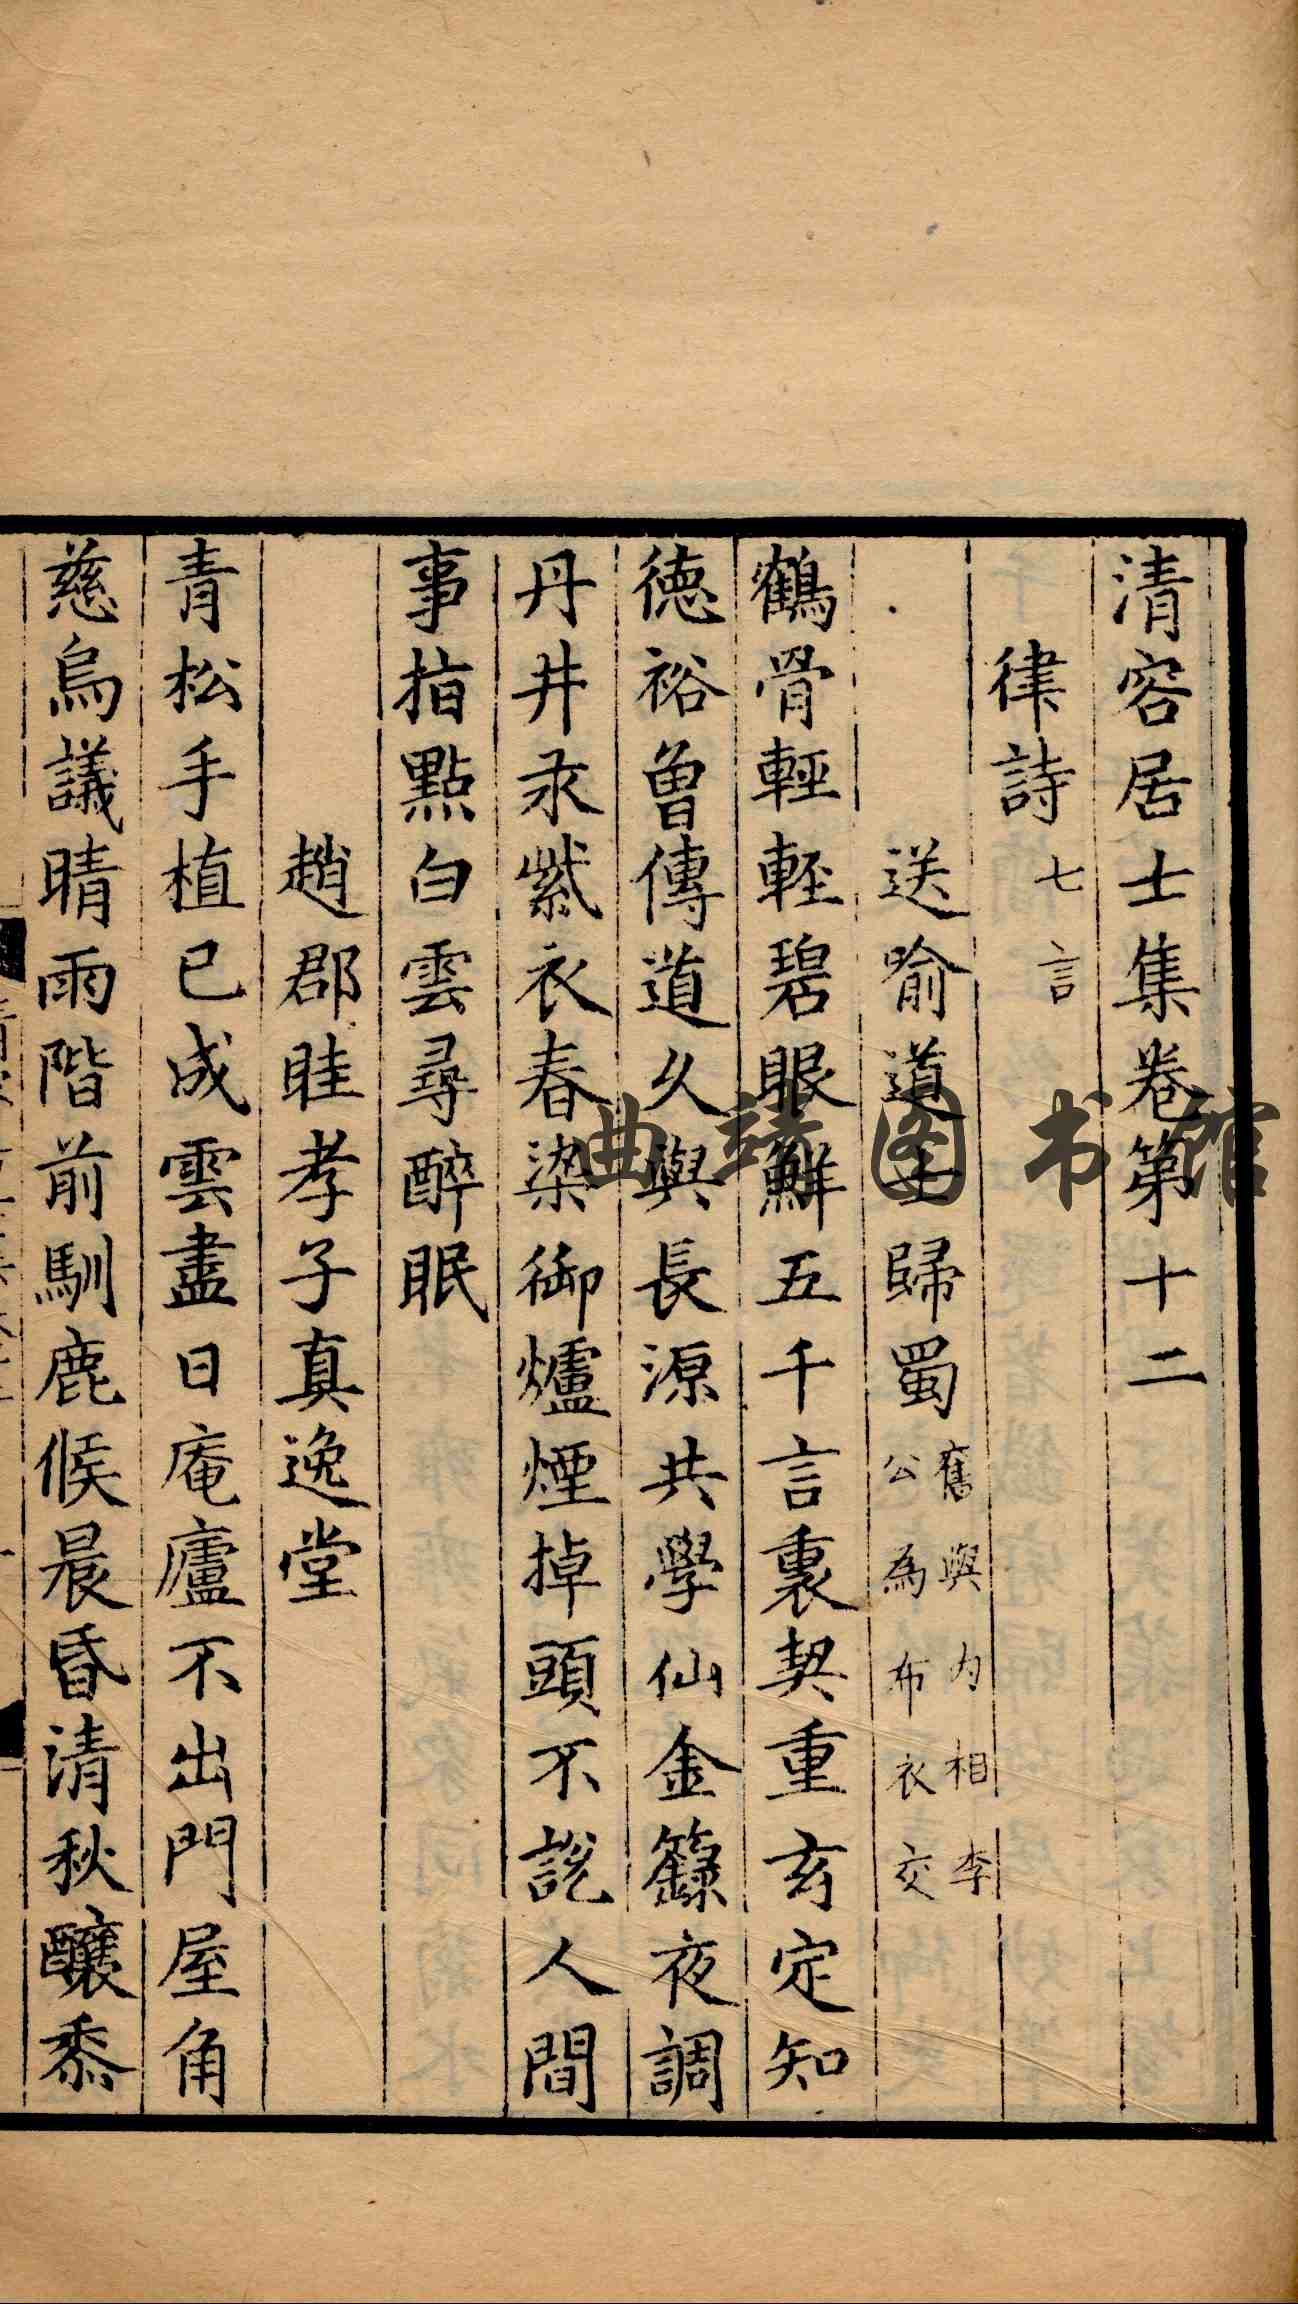 清容居士集卷第十二
律詩七言
送喻道士歸蜀舊與内相李公為布衣交
鶴骨輕輕碧眼鮮五千言裏契重玄定知
德裕曽傳道久與長源共學仙金籙夜調
丹井汞紫衣春染御爐煙掉頭不說人間
事指點白雲尋醉眠
趙郡眭孝子真逸堂
青松手植已成雲盡日庵廬不出門屋角
慈烏議晴雨階前馴鹿候晨昏清秋釀黍
曲靖图书馆